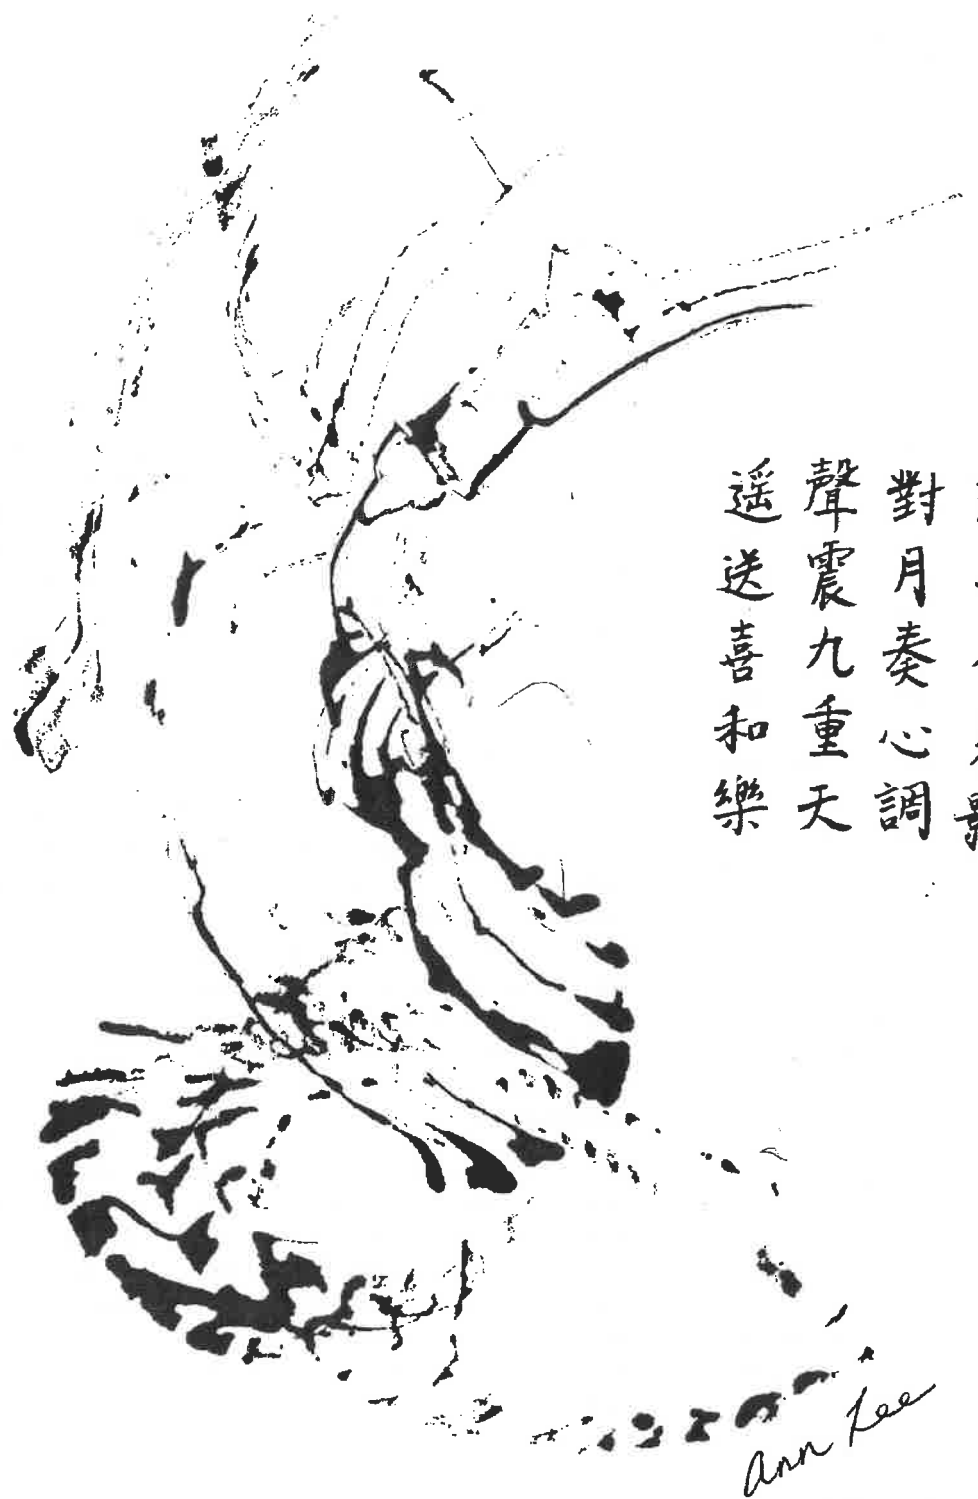 對月奏心調
聲震九重天
遥送喜和樂
Ann Lee